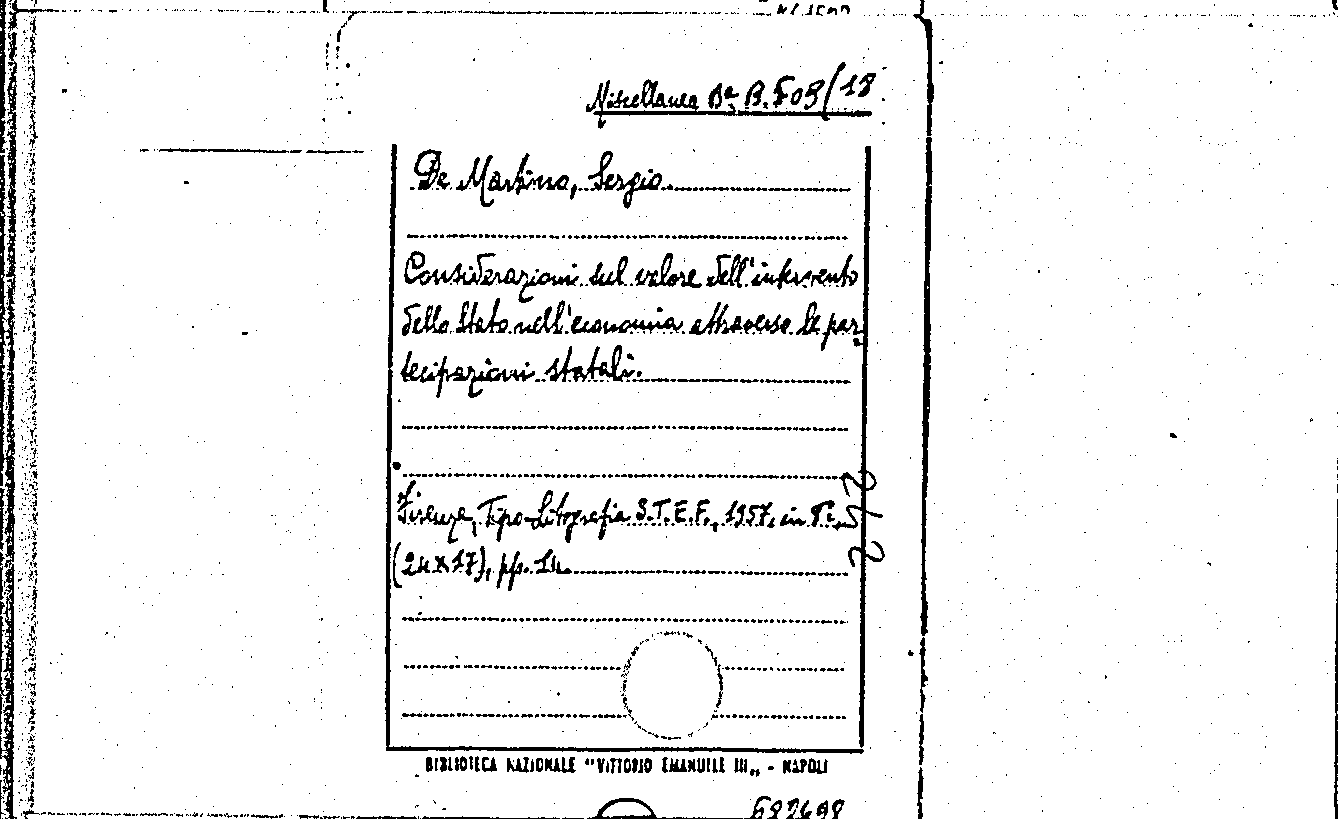 Miscellanea Ba B. 503/18
De Martino, Sergio.
Considerazioni sul valore dell'intervento
dello Stato nell'economia attraverso le par-
tecipazioni statali.
Firenze, Tipo-Litografia S.T.E.F., 1957, in 8°,
(24x17), pp. 14.
BIBLIOTECA NAZIONALE "VITTORIO EMANUELE III„ - NAPOLI
682698